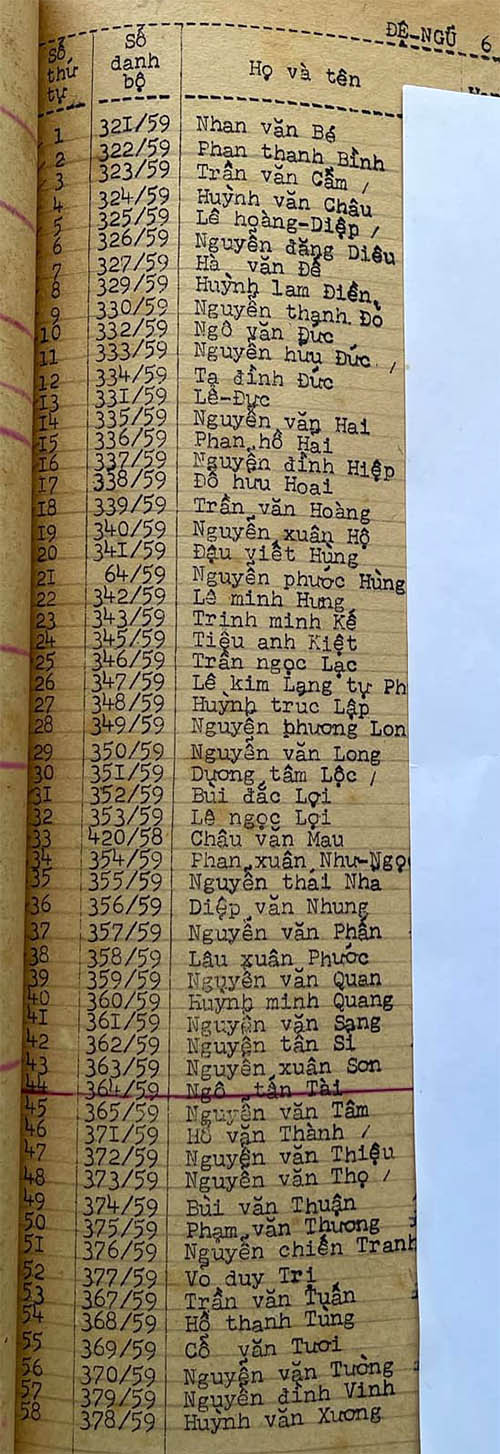 ĐỆ-NGŨ 6
Số thứ tự Số danh bộ Họ và tên
1 321/59 Nhan văn Bé
2 322/59 Phan thanh Bình
3 323/59 Trần văn Cẩm /
4 324/59 Huỳnh văn Châu
5 325/59 Lê hoàng-Diệp /
6 326/59 Nguyễn đăng Diêu
7 327/59 Hà văn Đê
8 329/59 Huỳnh lam Điền
9 330/59 Nguyễn thanh Đo
10 332/59 Ngô văn Đức
11 333/59 Nguyễn hữu Đức /
12 334/59 Tạ đình Đức
13 331/59 Lê-Đực
14 335/59 Nguyễn văn Hai
15 336/59 Phan hồ Hải
16 337/59 Nguyễn đình Hiệp
17 338/59 Đỗ hưu Hoai
18 339/59 Trần văn Hoàng
19 340/59 Nguyễn xuân Hộ
20 341/59 Đậu viết Hùng
21 64/59 Nguyễn phước Hùng
22 342/59 Lê minh Hưng
23 343/59 Trinh minh Kế
24 345/59 Tiêu anh Kiệt
25 346/59 Trần ngọc Lạc
26 347/59 Lê kim Lạng tự Ph
27 348/59 Huỳnh truc Lập
28 349/59 Nguyễn phương Lon
29 350/59 Nguyễn văn Long
30 351/59 Dương tâm Lộc /
31 352/59 Bùi đắc Lợi
32 353/59 Lê ngọc Lợi
33 420/58 Châu văn Mau
34 354/59 Phan xuân Như-Ngọ
35 355/59 Nguyễn thái Nha
36 356/59 Diệp văn Nhung
37 357/59 Nguyễn văn Phấn
38 358/59 Lâu xuân Phước
39 359/59 Nguyễn văn Quan
40 360/59 Huỳnh minh Quang
41 361/59 Nguyễn văn Sang
42 362/59 Nguyễn tấn Si
43 363/59 Nguyễn xuân Sơn
44 364/59 Ngô tấn Tài
45 365/59 Nguyễn văn Tâm
46 371/59 Hồ văn Thành /
47 372/59 Nguyễn văn Thiệu
48 373/59 Nguyễn văn Thọ /
49 374/59 Bùi văn Thuận
50 375/59 Phạm văn Thương
51 376/59 Nguyễn chiến Tranh
52 377/59 Vo duy Tri
53 367/59 Trần văn Tuấn
54 368/59 Hồ thanh Tùng
55 369/59 Cổ văn Tươi
56 370/59 Nguyễn văn Tường
57 379/59 Nguyễn đình Vinh
58 378/59 Huỳnh văn Xương